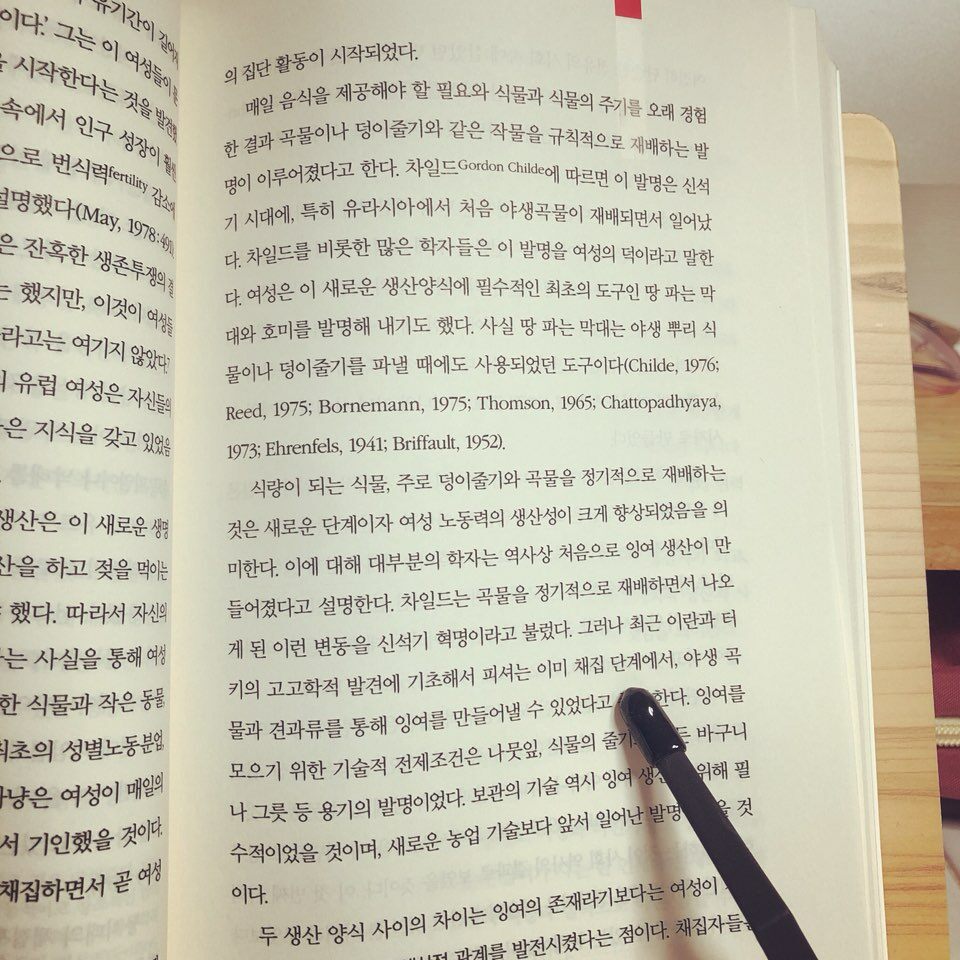 유기간이
이다.' 그는 이 여성들이
시작한다는 것을 발견했
속에서 인구 성장이 훨씬
으로 번식력fertility 감소에
설명했다(May, 1978:491).
은 잔혹한 생존투쟁의 결
는 했지만, 이것이 여성들
라고는 여기지 않았다.
유럽 여성은 자신들의
은 지식을 갖고 있었음
생산은 이 새로운 생명
산을 하고 젖을 먹이는
했다. 따라서 자신의
는 사실을 통해 여성
한 식물과 작은 동물,
최초의 성별노동분업,
사냥은 여성이 매일의
서 기인했을 것이다.
채집하면서 곧 여성
의 집단 활동이 시작되었다.
매일 음식을 제공해야 할 필요와 식물과 식물의 주기를 오래 경험
한 결과 곡물이나 덩이줄기와 같은 작물을 규칙적으로 재배하는 발
명이 이루어졌다고 한다. 차일드Gordon Childe에 따르면 이 발명은 신석
기 시대에, 특히 유라시아에서 처음 야생곡물이 재배되면서 일어났
다. 차일드를 비롯한 많은 학자들은 이 발명을 여성의 덕이라고 말한
다. 여성은 이 새로운 생산양식에 필수적인 최초의 도구인 땅 파는 막
대와 호미를 발명해 내기도 했다. 사실 땅 파는 막대는 야생 뿌리 식
물이나 덩이줄기를 파낼 때에도 사용되었던 도구이다(Childe, 1976;
Reed, 1975; Bornemann, 1975; Thomson, 1965; Chattopadhyaya,
1973; Ehrenfels, 1941; Briffault, 1952).
식량이 되는 식물, 주로 덩이줄기와 곡물을 정기적으로 재배하는
것은 새로운 단계이자 여성 노동력의 생산성이 크게 향상되었음을 의
미한다. 이에 대해 대부분의 학자는 역사상 처음으로 잉여 생산이 만
들어졌다고 설명한다. 차일드는 곡물을 정기적으로 재배하면서 나오
게 된 이런 변동을 신석기 혁명이라고 불렀다. 그러나 최근 이란과 터
키의 고고학적 발견에 기초해서 피셔는 이미 채집 단계에서, 야생 곡
물과 견과류를 통해 잉여를 만들어낼 수 있었다고 한다. 잉여를
모으기 위한 기술적 전제조건은 나뭇잎, 식물의 바구니
나 그릇 등 용기의 발명이었다. 보관의 기술 역시 잉여 위해 필
수적이었을 것이며, 새로운 농업 기술보다 앞서 일어난 발명 것
이다.
두 생산 양식 사이의 차이는 잉여의 존재라기보다는 여성이
관계를 발전시켰다는 점이다. 채집자들은